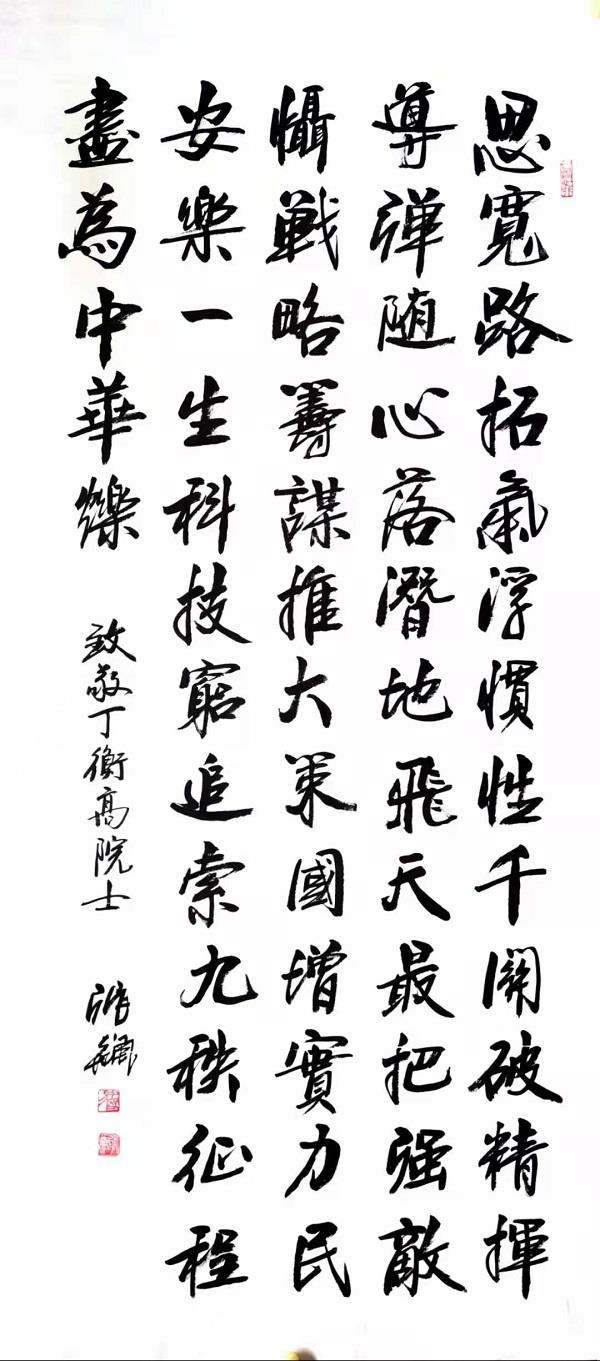 思寬路拓氣浮慣性千關破精揮
導彈随心落潛地飛天最把强敵
懾戰略籌謀推大策國增實力民
安樂一生科技窮追索九秩征程
盡為中華爍
致敬丁衡高院士